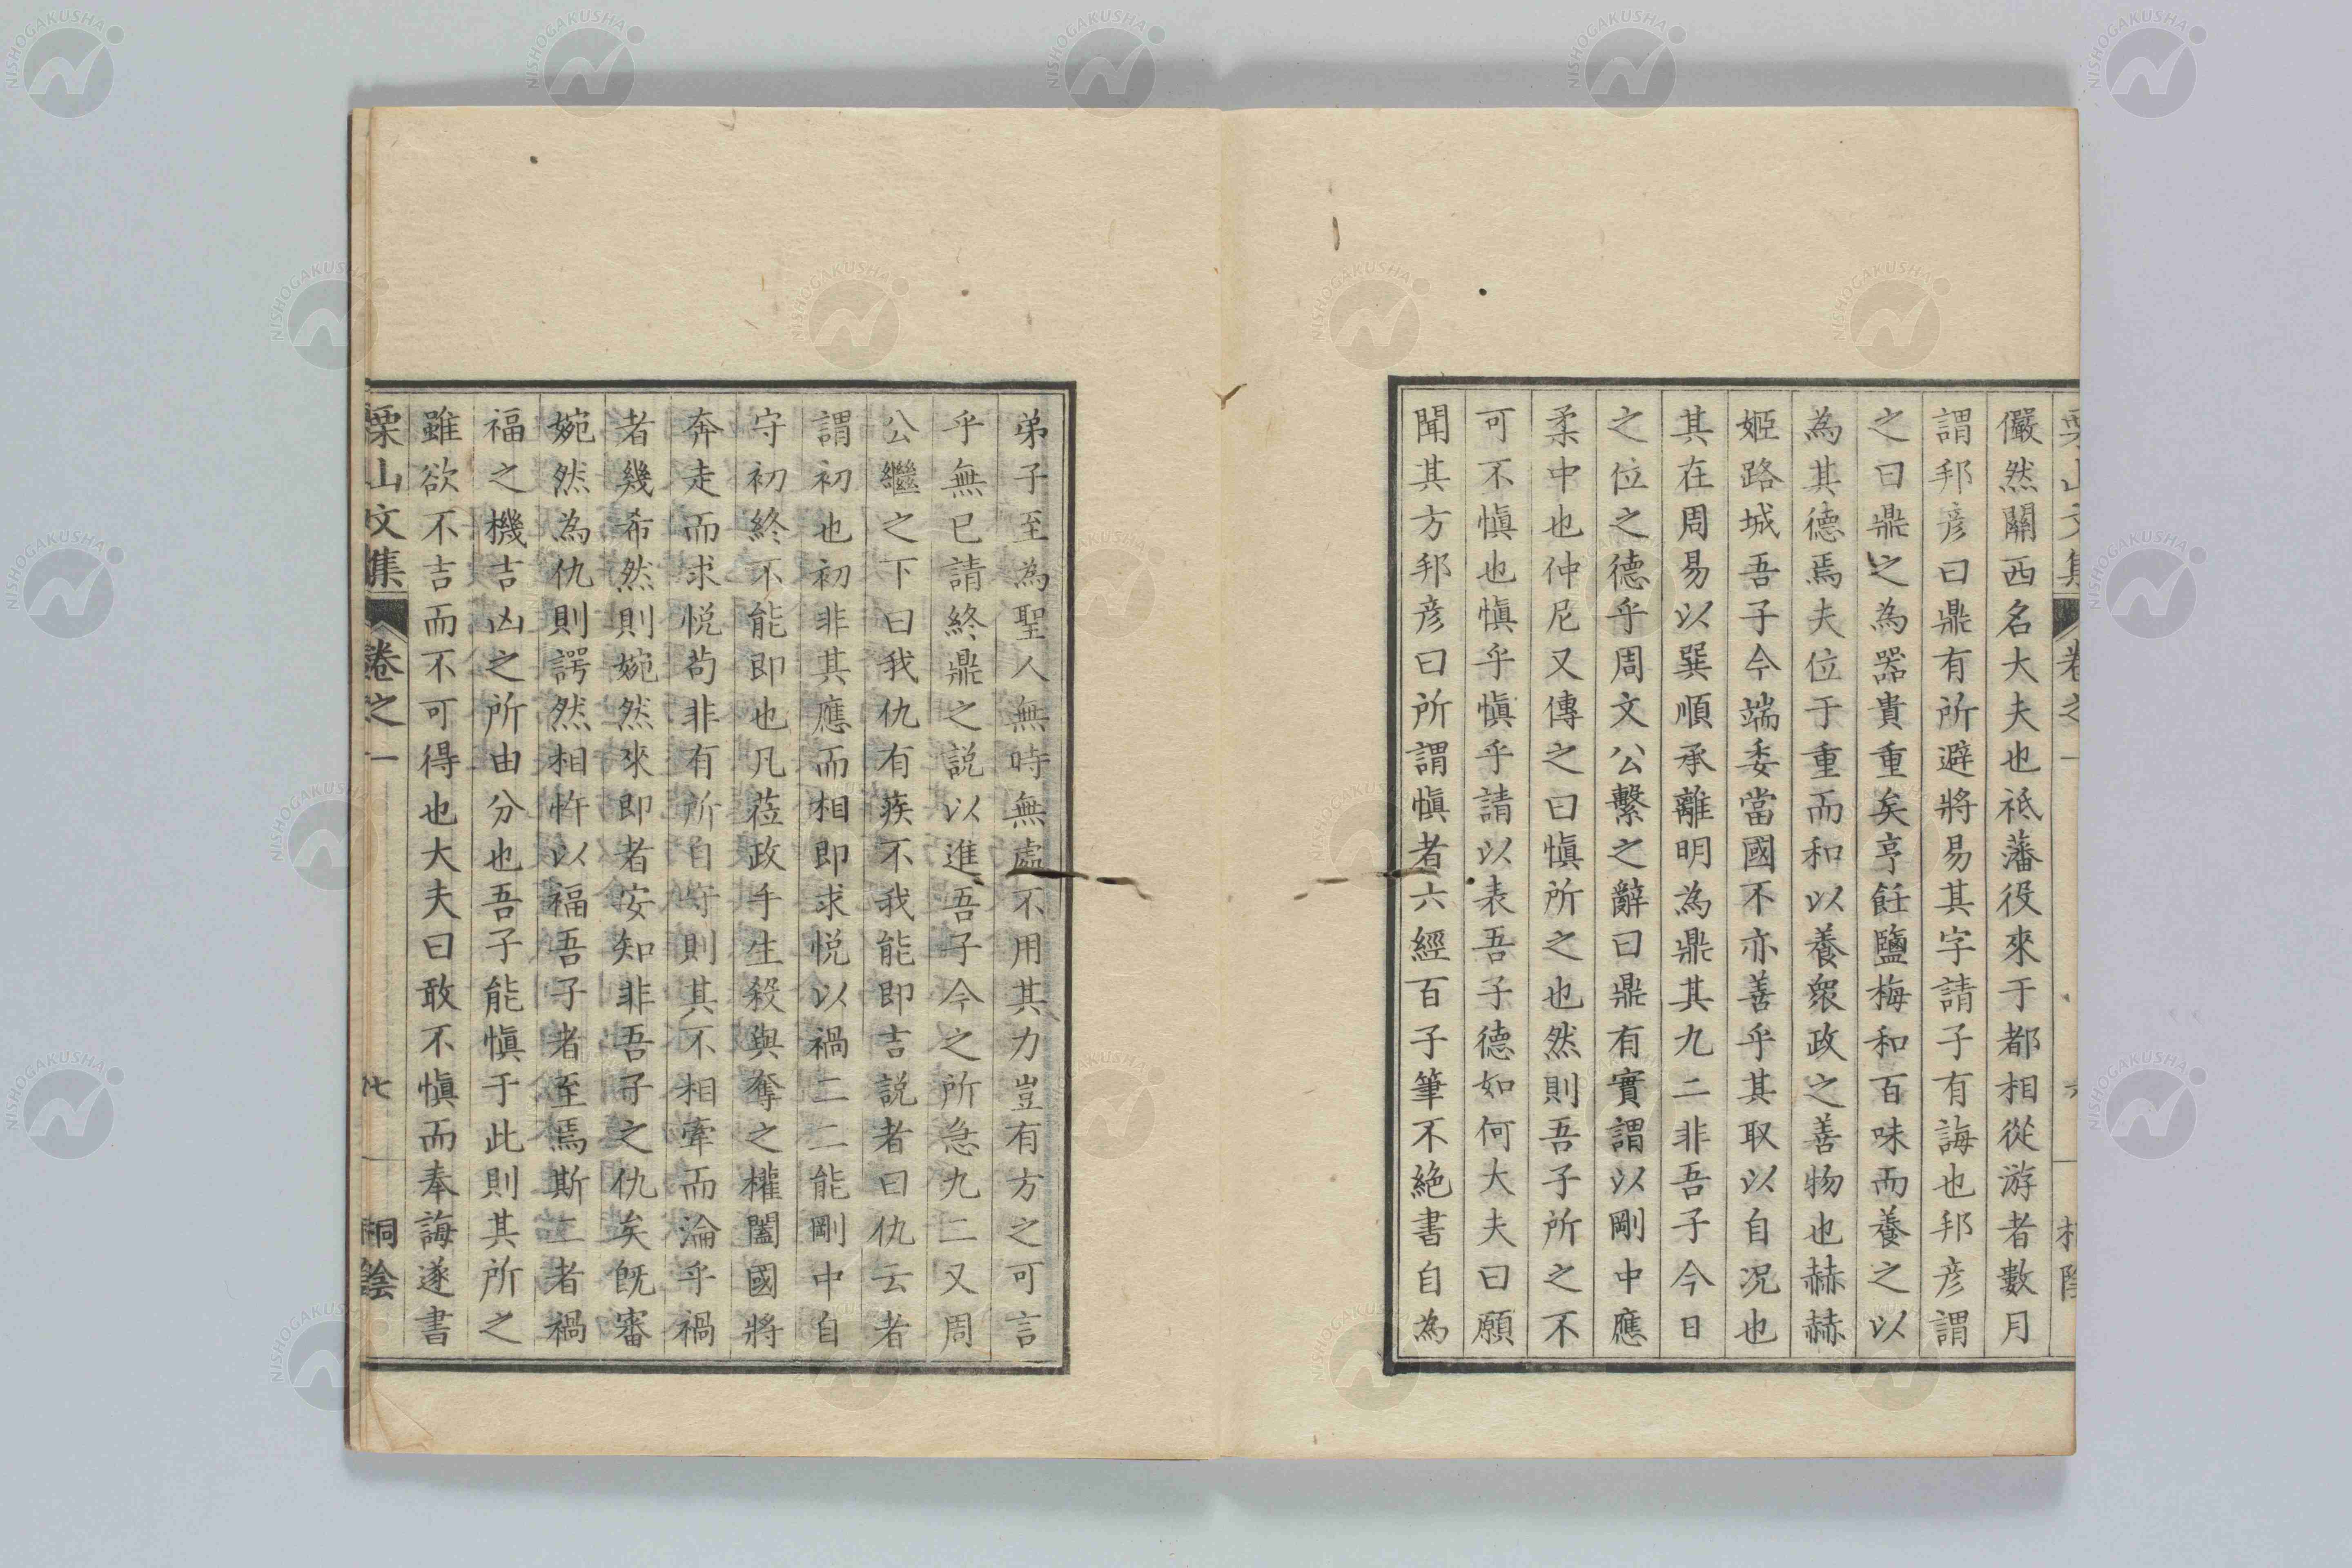 儼然關西名大夫也祗藩役來于都相從游者數月
謂邦彦曰鼎有所避將易其字請子有誨也邦彦謂
之曰鼎之為器貴重矣亨飪鹽梅和百味而養之以
為其德焉夫位于重而和以養衆政之善物也赫赫
姬路城吾子今端委當國不亦善乎其取以自况也
其在周易以巽順承離明為鼎其九二非吾子今日
之位之德乎周文公繫之辭曰鼎有實謂以剛中應
柔中也仲尼又傳之曰慎所之也然則吾子所之不
可不慎也慎乎慎乎請以表吾子德如何大夫曰願
聞其方邦彦曰所謂慎者六經百子筆不絶書自為
弟子至為聖人無時無處不用其力豈有方之可言
乎無已請終鼎之説以進吾子今之所急九二又周
公繼之下曰我仇有疾不我能即吉説者曰仇云者
謂初也初非其應而相即求悦以禍二二能剛中自
守初終不能即也凡莅政手生殺與奪之權闔國將
奔走而求悦苟非有所自守則其不相牽而淪乎禍
者幾希然則婉然來即者安知非吾子之仇矣既審
婉然為仇則諤然相忤以福吾子者至焉斯二者禍
福之機吉凶之所由分也吾子能慎于此則其所之
雖欲不吉而不可得也大夫曰敢不慎而奉誨遂書
栗山文集 卷之一 七 桐陰